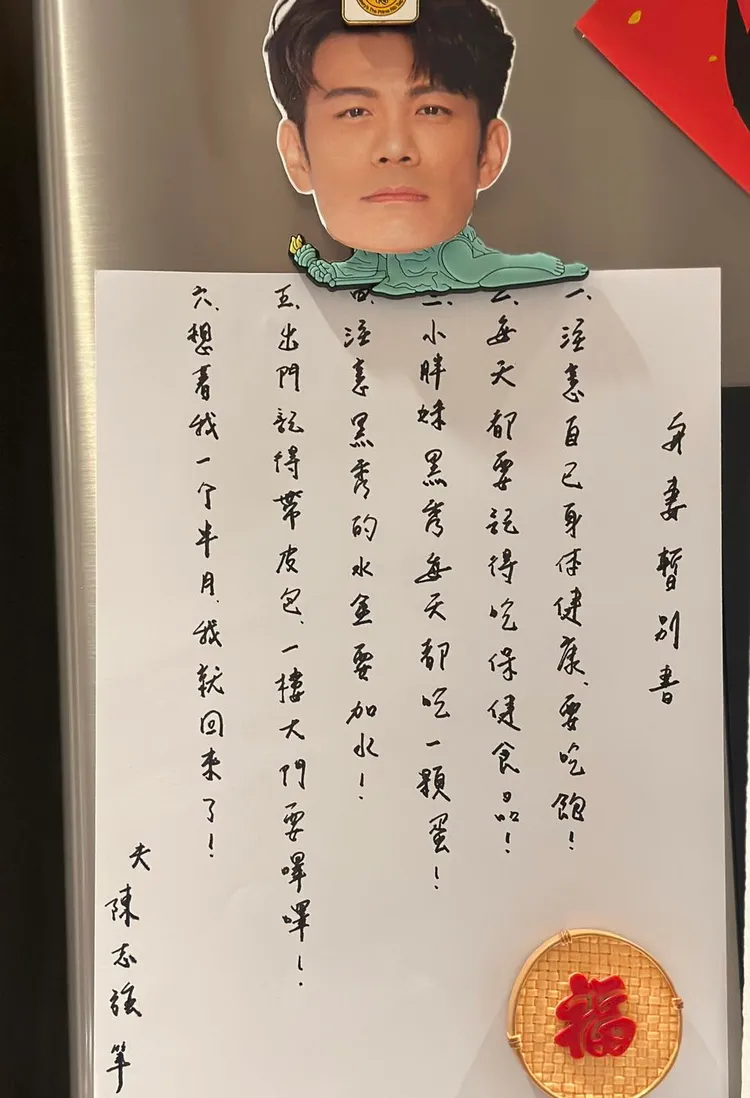 與妻暫別書
一、注意自己身体健康、要吃飽!
二、每天都要記得吃保健食品!
三、小胖妹黑秀每天都吃一顆蛋!
四、注意黑秀的水盆要加水!
五、出門記得帶皮包、一樓大門要嗶嗶!
六、想着我一个半月、我就回来了!
夫 陳志強 筆
福